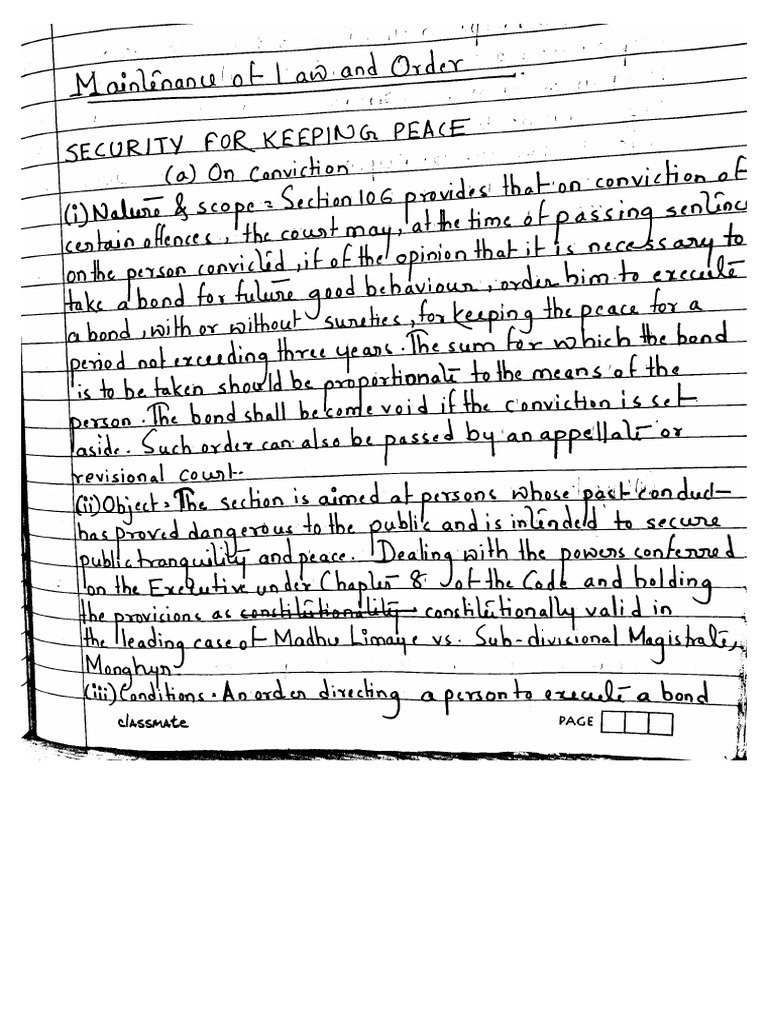 Maintenance of Law and Order
SECURITY FOR KEEPING PEACE
(a) On Conviction
(i) Nature & scope = Section 106 provides that on conviction of
certain offences, the court may, at the time of passing sentenc
on the person convicted, if of the opinion that it is necessary to
take a bond for future good behaviour, order him to execute
a bond, with or without sureties, for keeping the peace for a
period not exceeding three years. The sum for which the bond
is to be taken should be proportionate to the means of the
person. The bond shall become void if the conviction is set
aside. Such order can also be passed by an appellate or
revisional court.
(ii) Object = The section is aimed at persons whose past conduct
has proved dangerous to the public and is intended to secure
public tranquility and peace. Dealing with the powers conferred
on the Executive under Chapter 8 of the Code and holding
the provisions as constitutionality constitutionally valid in
the leading case of Madhu Limaye vs. Sub-divisional Magistrate,
Monghyr.
(iii) Conditions. An order directing a person to execute a bond
classmate PAGE